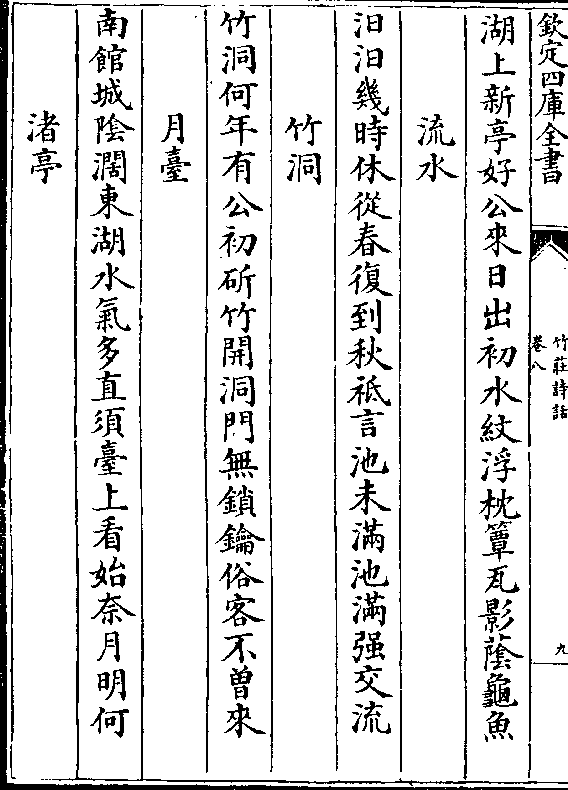 欽定四庫全書
竹莊詩話
卷八
九
湖上新亭好公來日出初水紋浮枕簟瓦影蔭龜魚
流水
汩汩幾時休從春復到秋祗言池未滿池滿强交流
竹洞
竹洞何年有公初斫竹開洞門無鎖鑰俗客不曾來
月臺
南館城陰濶東湖水氣多直須臺上看始奈月明何
渚亭